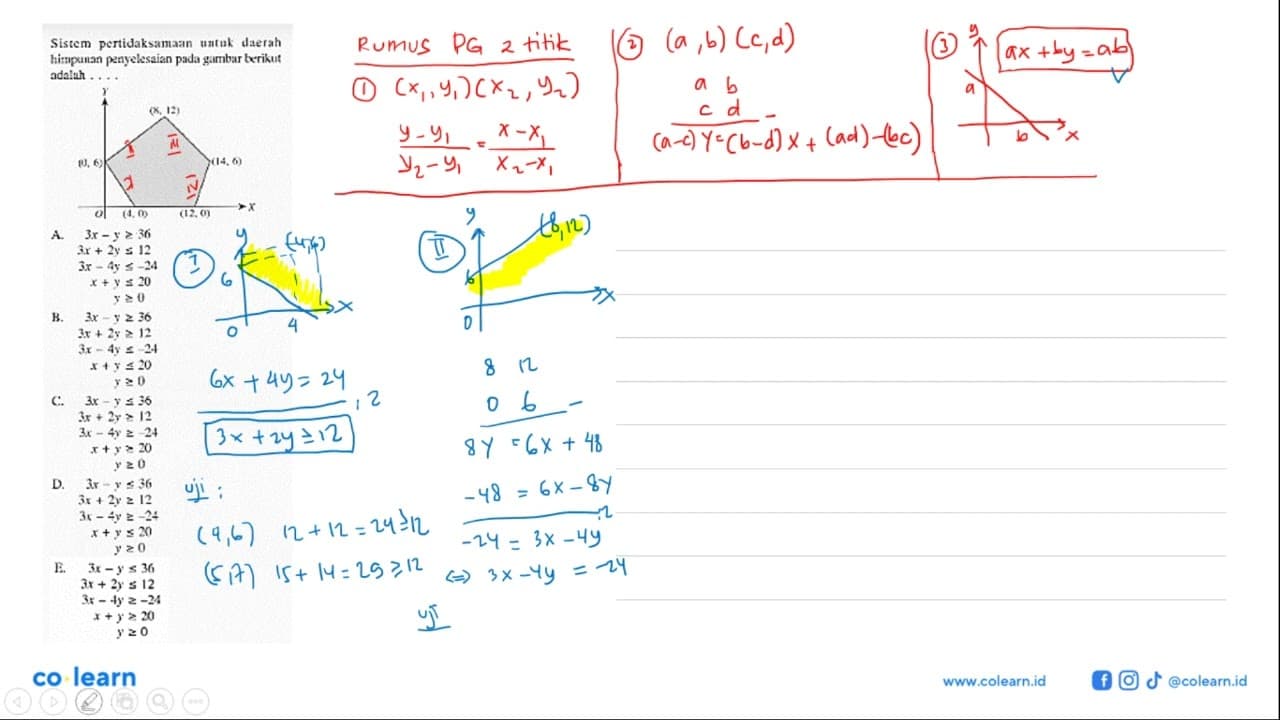 Sistem pertidaksamaan untuk daerah
himpunan penyelesaian pada gambar berikut
adalah . . . .
Y
(8, 12)
(0, 6)
(14, 6)
O
(4, 0)
(12, 0)
X
A. 3x – y ≥ 36
3x + 2y ≤ 12
3x – 4y ≤ –24
x + y ≤ 20
y ≥ 0
B. 3x – y ≥ 36
3x + 2y ≥ 12
3x – 4y ≤ –24
x + y ≤ 20
y ≥ 0
C. 3x – y ≤ 36
3x + 2y ≥ 12
3x – 4y ≥ –24
x + y ≥ 20
y ≥ 0
D. 3x – y ≤ 36
3x + 2y ≥ 12
3x – 4y ≥ –24
x + y ≤ 20
y ≥ 0
E. 3x – y ≤ 36
3x + 2y ≤ 12
3x – 4y ≥ –24
x + y ≥ 20
y ≥ 0
RUMUS PG 2 titik
① (x₁, y₁)(x₂, y₂)
y-y₁ / y₂-y₁ = x-x₁ / x₂-x₁
② (a,b)(c,d)
a b
c d –
(a-c)y=(b-d)x + (ad)-(bc)
③ y
ax + by = ab
a
b
x
I
y
(4,6)
6
x
0
4
6x + 4y = 24
: 2
3x + 2y ≥ 12
uji :
(4,6) 12 + 12 = 24 ≥ 12
(5,7) 15 + 14 = 29 ≥ 12
II
y
(8,12)
6
x
0
8 12
0 6 –
8y = 6x + 48
-48 = 6x - 8y
:2
-24 = 3x - 4y
⇔ 3x - 4y = -24
uji
co·learn
www.colearn.id
@colearn.id